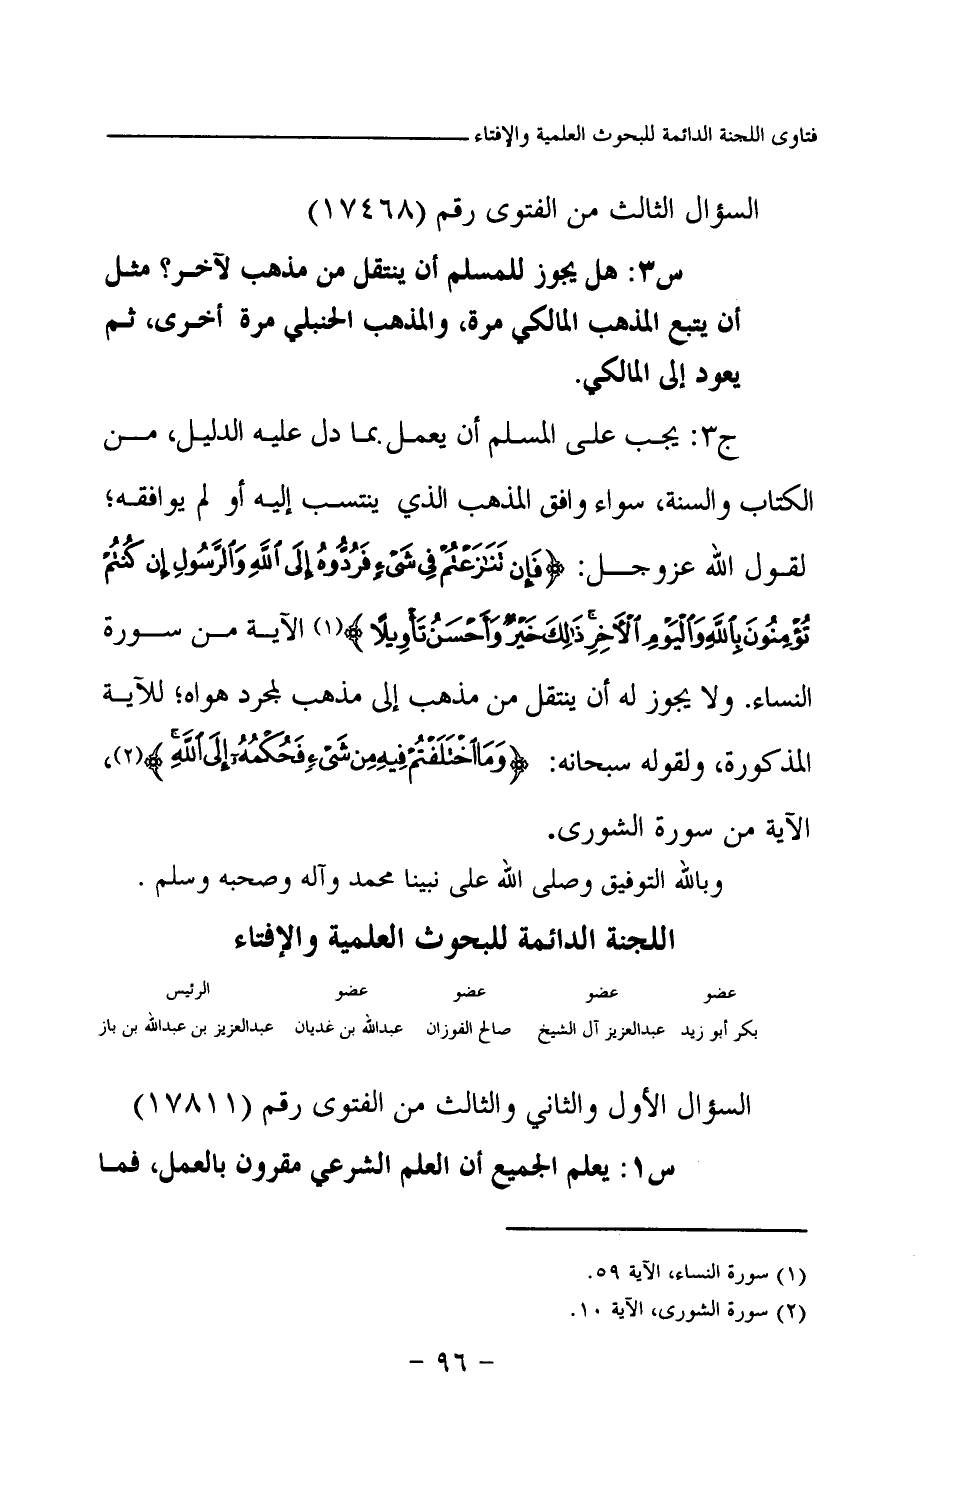 فتاوى اللجنة الدائمة للبحوث العلمية والإفتاء
السؤال الثالث من الفتوى رقم (١٧٤٦٨)
س٣: هل يجوز للمسلم أن ينتقل من مذهب لآخر؟ مثل
أن يتبع المذهب المالكي مرة، والمذهب الحنبلي مرة أخرى، ثم
يعود إلى المالكي.
ج٣: يجب على المسلم أن يعمل بما دل عليه الدليل، من
الكتاب والسنة، سواء وافق المذهب الذي ينتسب إليه أو لم يوافقه؛
لقول الله عزوجل: ﴿فَإِن تَنَٰزَعْتُمْ فِى شَىْءٍ فَرُدُّوهُ إِلَى ٱللَّهِ وَٱلرَّسُولِ إِن كُنتُمْ
تُؤْمِنُونَ بِٱللَّهِ وَٱلْيَوْمِ ٱلْأَخِرِ ۚ ذَٰلِكَ خَيْرٌ وَأَحْسَنُ تَأْوِيلًا﴾(١) الآية من سورة
النساء. ولا يجوز له أن ينتقل من مذهب إلى مذهب لمجرد هواه؛ للآية
المذكورة، ولقوله سبحانه: ﴿وَمَا ٱخْتَلَفْتُمْ فِيهِ مِن شَىْءٍ فَحُكْمُهُۥٓ إِلَى ٱللَّهِ ۚ﴾(٢)،
الآية من سورة الشورى.
وبالله التوفيق وصلى الله على نبينا محمد وآله وصحبه وسلم .
اللجنة الدائمة للبحوث العلمية والإفتاء
عضو عضو عضو عضو الرئيس
بكر أبو زيد عبدالعزيز آل الشيخ صالح الفوزان عبدالله بن غديان عبدالعزيز بن عبدالله بن باز
السؤال الأول والثاني والثالث من الفتوى رقم (١٧٨١١)
س١: يعلم الجميع أن العلم الشرعي مقرون بالعمل، فما
(١) سورة النساء، الآية ٥٩.
(٢) سورة الشورى، الآية ١٠.
- ٩٦ -